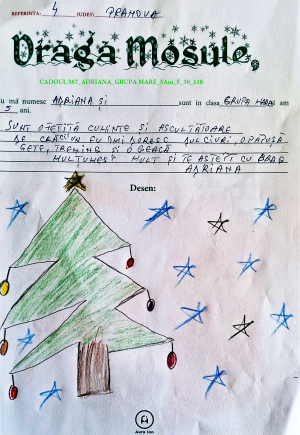 REFERINTA: 4 JUDET: PRAHOVA
Dragă Moșule,
CADOUL 587_ADRIANA_GRUPA MARE_5Ani_F_30_110
u mă numesc ADRIANA ȘI sunt in clasa GRUPA MARE am
5 ani.
SUNT O FETIȚĂ CUMINTE ȘI ASCULTĂTOARE
DE CRĂCIUN EU ÎMI DORESC DULCIURI, O PĂPUȘĂ
GETE, TRENING ȘI O GEACĂ
MULȚUMESC MULT ȘI TE AȘTEPT CU DRAG
ADRIANA
Desen:
Aura Ion